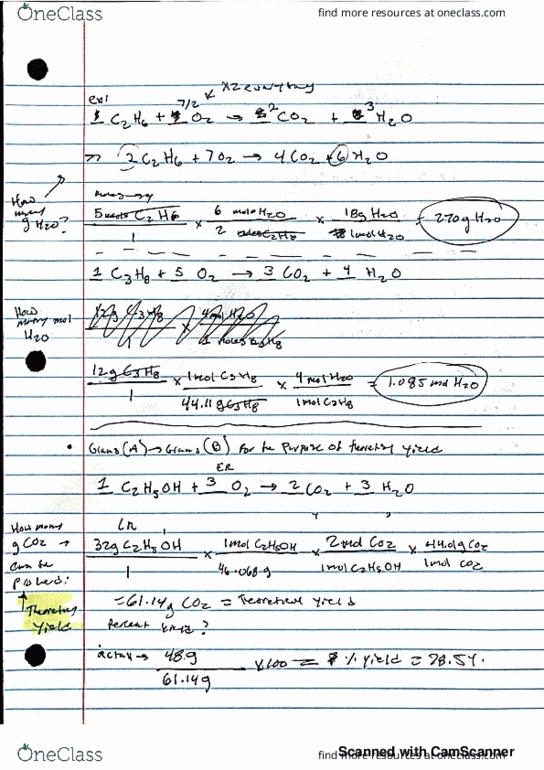 OneClass
find more resources at oneclass.com
x2 everything
ex1 7/2
1 C2H6 + O2 → 2 CO2 + 3 H2O
2 C2H6 + 7O2 → 4 CO2 + 6 H2O
How many g H2O?
5 moles C2H6 / 1 × 6 mole H2O / 2 moles C2H6 × 18g H2O / 1 mol H2O = 270 g H2O
1 C3H8 + 5 O2 → 3 CO2 + 4 H2O
How many mol H2O
12g C3H8 / 1 × 4 mol H2O / 1 moles C3H8
12g C3H8 / 1 × 1mol C3H8 / 44.11 g C3H8 × 4 mol H2O / 1mol C3H8 = 1.085 mol H2O
• Grams (A) → Grams (B) for the purpose of theoretical yield
ER
1 C2H5OH + 3 O2 → 2 CO2 + 3 H2O
LR
How many g CO2 → can be
32g C2H5OH / 1 × 1mol C2H5OH / 46.068g × 2 mol CO2 / 1mol C2H5OH × 44.01g CO2 / 1mol CO2
Theoretical Yield
= 61.14g CO2 = Theoretical yield
Percent yield?
actual → 48g / 61.14g × 100 = % yield = 78.5%
OneClass
find more resources at oneclass.com
Scanned with CamScanner